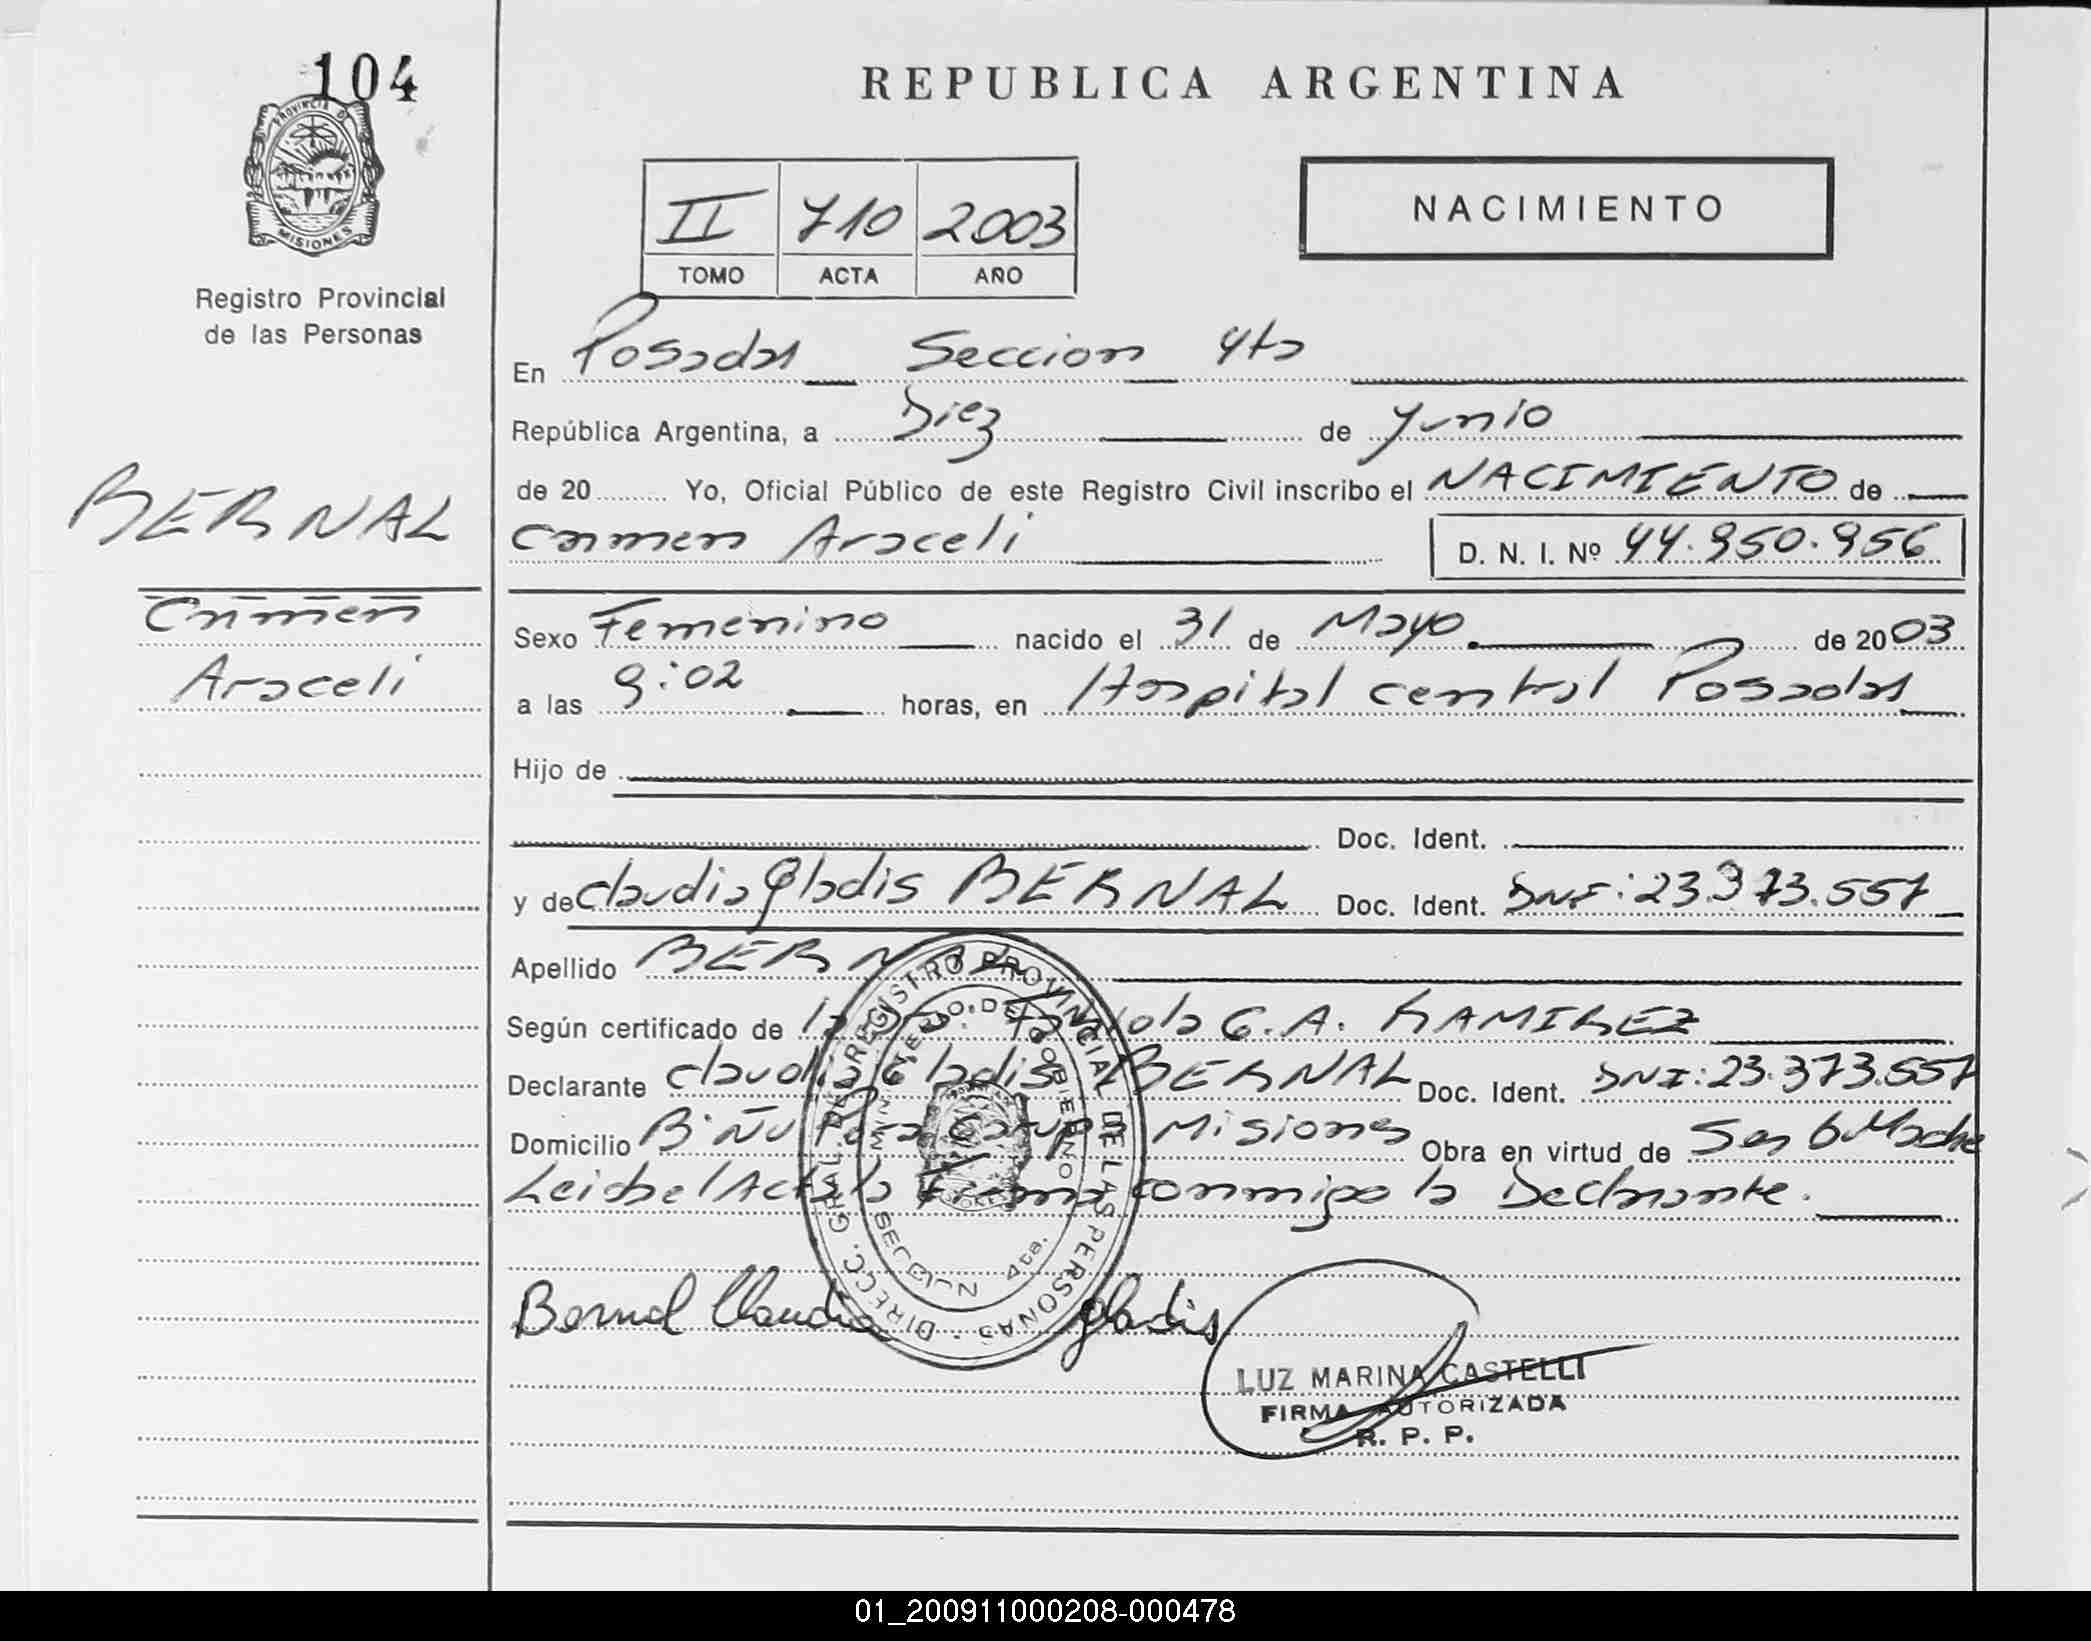 104
PROVINCIA DE
MISIONES
Registro Provincial
de las Personas
BERNAL
Carmen
Araceli
REPUBLICA ARGENTINA
II 710 2003
TOMO ACTA AÑO
NACIMIENTO
En Posadas Seccion 4ta
República Argentina, a Diez de Junio
de 20 Yo, Oficial Público de este Registro Civil inscribo el NACIMIENTO de
Carmen Araceli D. N. I. Nº 44.950.956
Sexo Femenino nacido el 31 de Mayo de 2003
a las 9:02 horas, en Hospital central Posadas
Hijo de
Doc. Ident.
y de Claudia Gladis BERNAL Doc. Ident. DNI: 23.373.557
Apellido BERNAL
Según certificado de la G. A. RAMIREZ
Declarante Claudia Gladis BERNAL Doc. Ident. DNI: 23.373.557
Domicilio Bº Ñu Pora Garupa Misiones Obra en virtud de Ser la Madre
Leida el Acta la Firma conmigo la Declarante.
DIRECC. GRAL. DEL REGISTRO PROVINCIAL DE LAS PERSONAS
Bernal Claudia Gladis
LUZ MARINA CASTELLI
FIRMA AUTORIZADA
R. P. P.
01_200911000208-000478